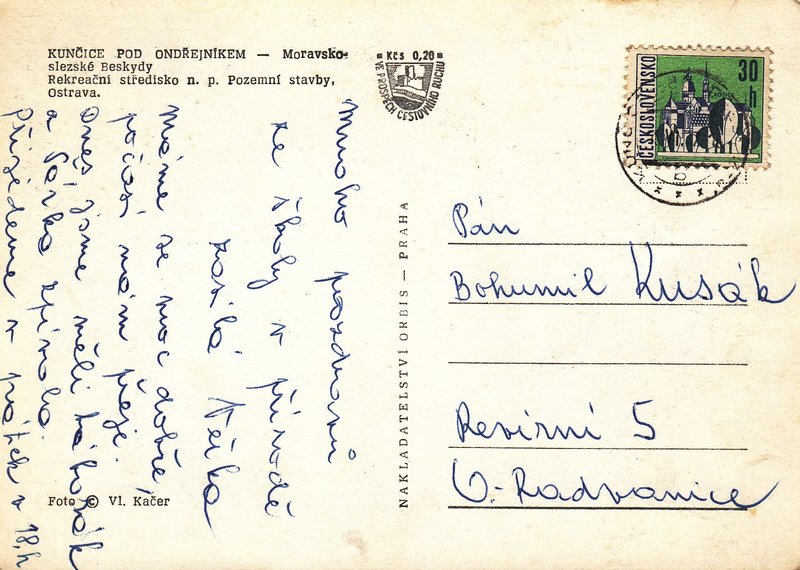 KUNČICE POD ONDŘEJNÍKEM — Moravsko-
slezské Beskydy
Rekreační středisko n. p. Pozemní stavby,
Ostrava.
Kčs 0,20
VE PROSPĚCH CESTOVNÍHO RUCHU
ČESKOSLOVENSKO
30
h
b
Mnoho pozdravů
ze školy v přírodě
zasílá Věrka
Máme se moc dobře,
počasí nám přeje.
Dnes jsme měli táborák
a Věrka zpívala.
Přijedeme v pátek v 18,h
NAKLADATELSTVÍ ORBIS — PRAHA
Pán
Bohumil Kusák
Revírní 5
O-Radvanice
Foto © Vl. Kačer